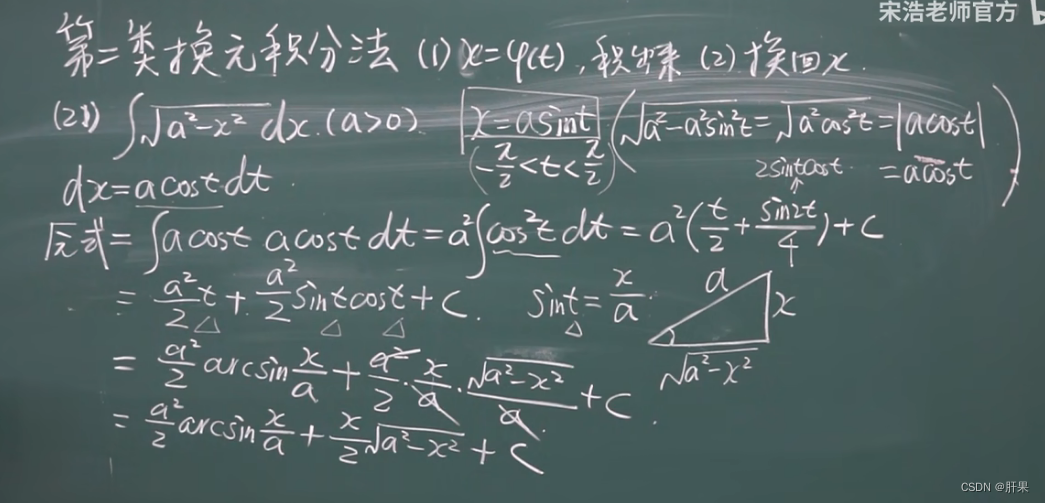 宋浩老师官方
第二类换元积分法 (1) x=φ(t), 积出来 (2) 换回x.
(例) ∫√(a²-x²) dx. (a>0). x=asint (√(a²-a²sin²t)=√(a²cos²t)=|acost|
(-π/2<t<π/2) 2sintcost =acost)
dx=acost dt.
原式=∫acost acost dt=a²∫cos²t dt=a²(t/2+sin2t/4)+C
=a²/2 t+a²/2 sintcost+C. sint=x/a. a x √(a²-x²)
=a²/2 arcsin x/a+a²/2·x/a·√(a²-x²)/a+C.
=a²/2 arcsin x/a+x/2 √(a²-x²)+C
CSDN @肝果